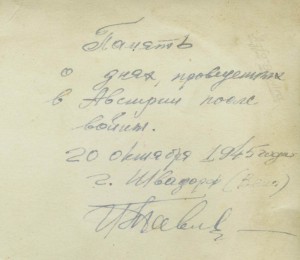 Память
о днях, проведенных
в Австрии после
войны.
20 октября 1945 года
г. Швадорф